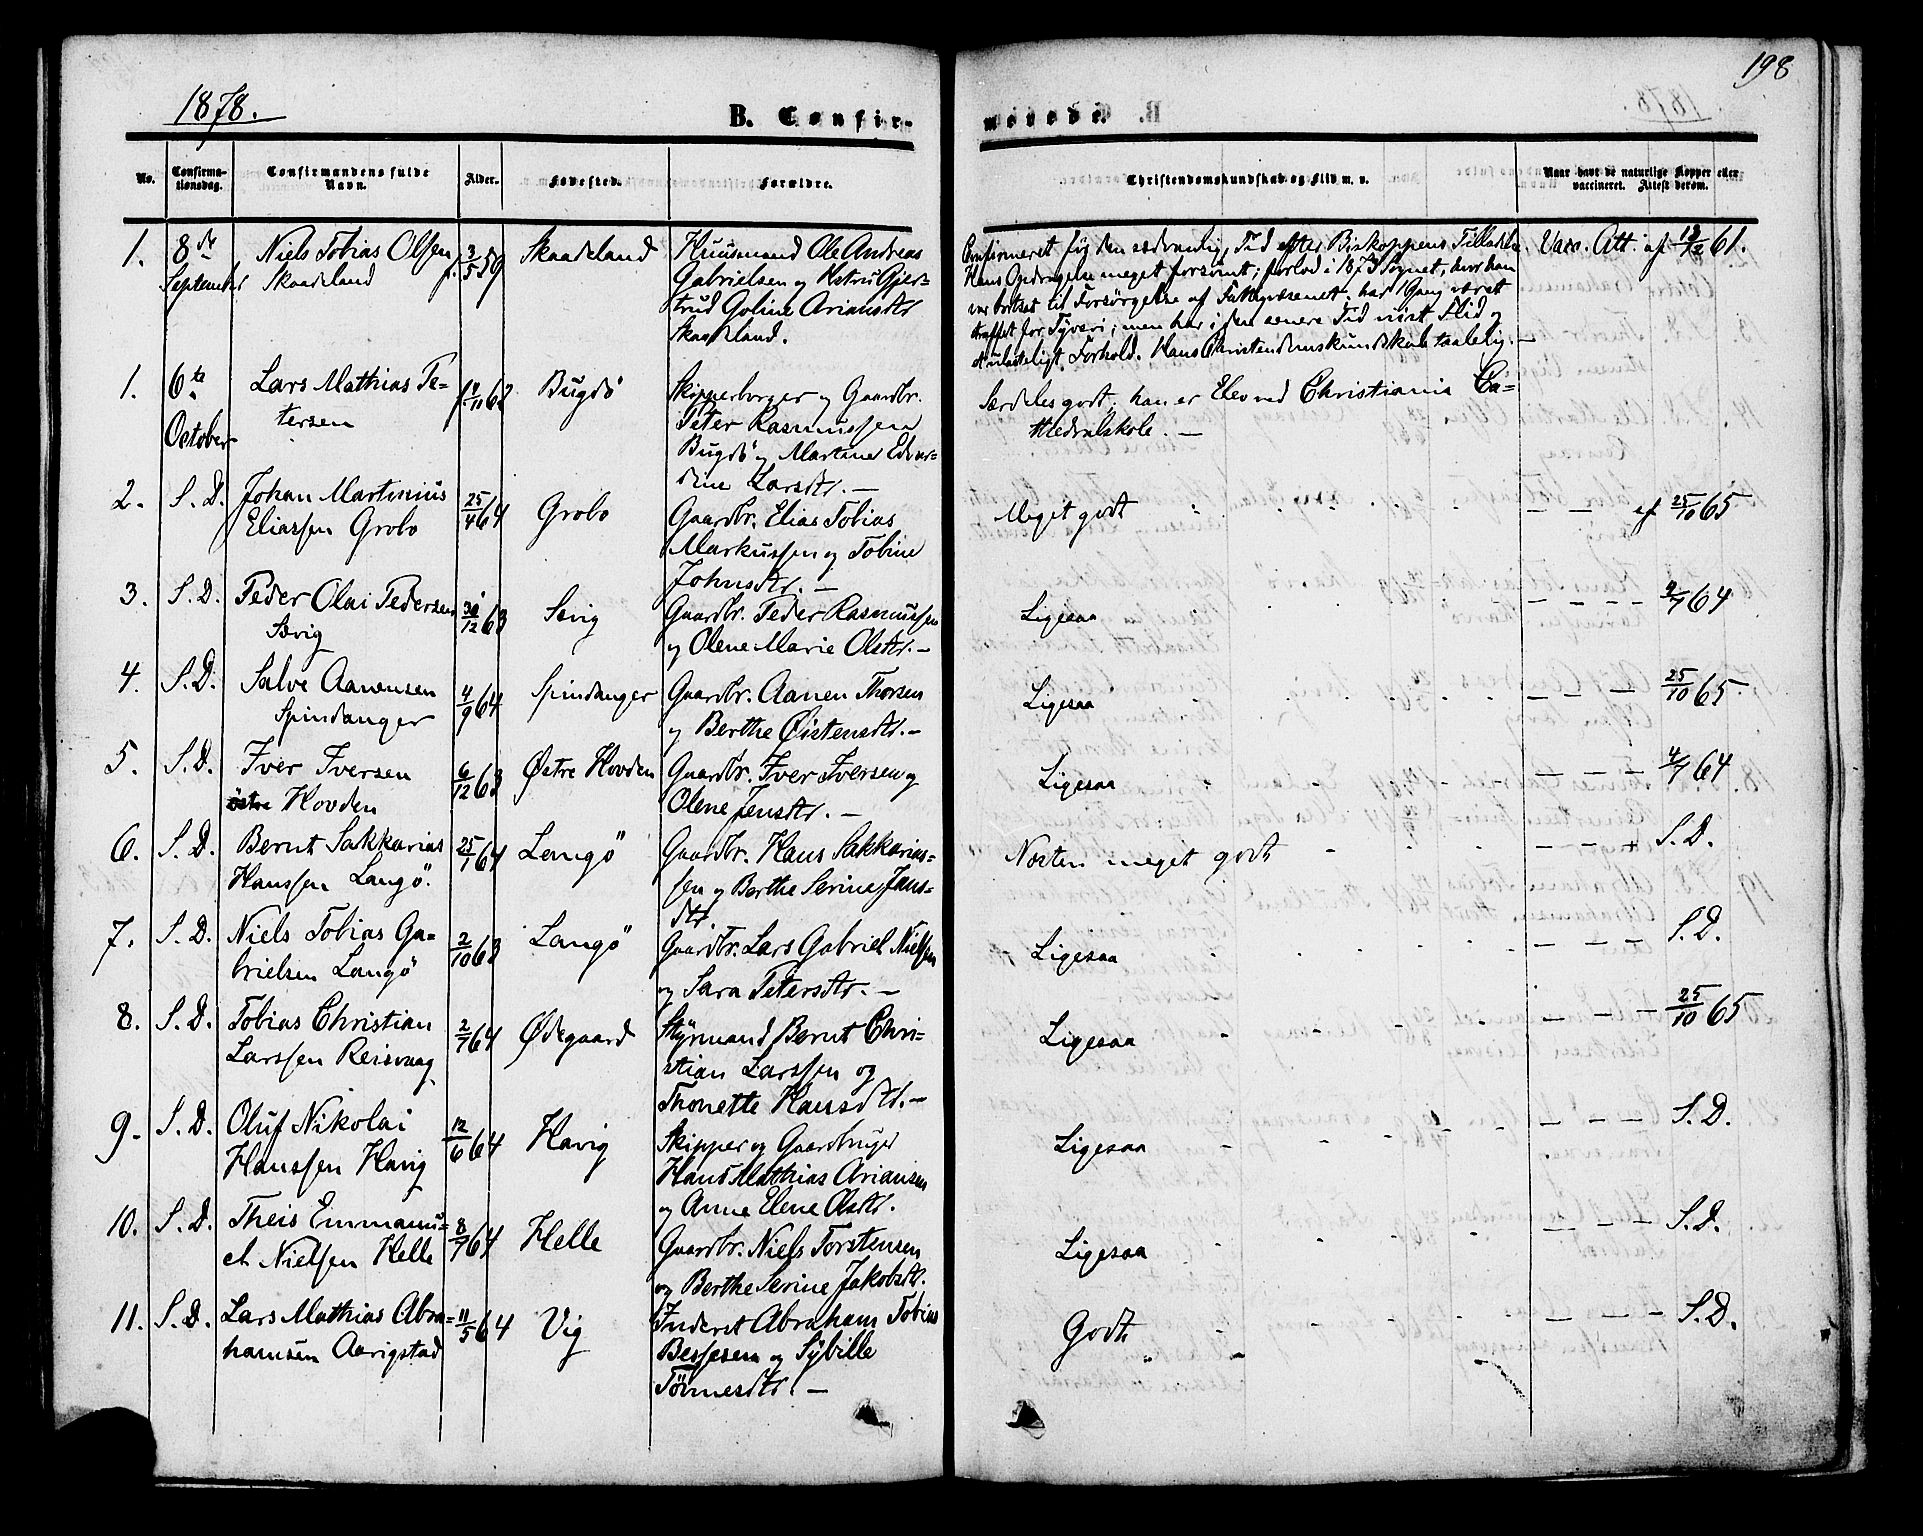 198
1878.
B. Confir-
merede.
No.
Confirma-
tionsdag.
Confirmandens fulde
Navn.
Alder.
Fødested.
Forældre.
Christendomskundskab og Flid m. v.
Naar havt de naturlige Kopper eller
vaccineret. Attest derom.
1. 8de September
Niels Tobias Olsen
Skaadeland
f. 3/5 59
Skaadeland
Huusmand Ole Andreas
Gabrielsen og Hstru Gjer-
trud Goline Ariansdtr
Skaadeland.
Confirmeret før den sædvanlig Tid efter Biskoppens Tilladelse
Hans Opdragelse meget forsømt; forlod i 1873 Sognet, hvor han
var bortsat til Forsørgelse af Fattigvæsenet, har 1 Gang været
straffet for Tyveri; men har i den senere Tid vist Flid og
anstændeligt Forhold. Hans Christendomskundskab taalelig. —
Vacc. Att. af 19/12 61.
1. 6te October
Lars Mathias Pe-
tersen
f. 4/11 63
Bugdö
Skipperborger og Gaardbr.
Peter Rasmussen
Bugdö og Martine Edvar-
dine Larsdtr. —
Særdeles godt; han er Elev ved Christiania Ca-
thedralskole. —
2. S. D.
Johan Martinius
Eliassen Grobo
25/4 64
Grobo
Gaardbr. Elias Tobias
Markussen og Tobine
Johnsdtr. —
Meget godt
— — af 25/10 65
3. S. D.
Peder Olai Pedersen
Sævig
30/12 63
Sævig
Gaardbr. Peder Rasmussen
og Olene Marie Olsdtr. —
Ligesaa
— — — — 4/7 64
4. S. D.
Salve Aanensen
Spindanger
4/9 64
Spindanger
Gaardbr. Aanen Thorsen
og Berthe Øistensdtr. —
Ligesaa
— — — 25/10 65.
5. S. D.
Iver Iversen
östre Hovden
6/12 63
Østre Hovden
Gaardbr. Iver Iversen og
Olene Jensdtr. —
Ligesaa
— — — 4/7 64
6. S. D.
Bernt Sakkarias
Hanssen Langö.
25/1 64
Langö
Gaardbr. Hans Sakkarias-
sen og Berthe Serine Jans-
dtr.
Næsten meget godt
— — — S. D.
7. S. D.
Niels Tobias Ga-
brielsen Langö
2/10 63
Langö
Gaardbr. Lars Gabriel Nielsen
og Sara Petersdtr. —
Ligesaa
— — — S. D.
8. S. D.
Tobias Christian
Larssen Reisvaag
2/7 64
Ødegaard
Styrmand Bernt Chri-
stian Larssen og
Thonette Hansdtr. —
Ligesaa
— — — 25/10 65
9. S. D.
Oluf Nikolai
Hanssen Havig
12/6 64
Havig
Skipper og Gaardbruger
Hans Mathias Ariansen
og Anne Elene Olsdtr.
Ligesaa
— — — S. D.
10. S. D.
Theis Emmanu-
el Nielsen Helle
8/7 64
Helle
Gaardbr. Niels Torstensen
og Berthe Serine Jakobsdtr.
Ligesaa
— — — S. D.
11. S. D.
Lars Mathias Abra-
hamsen Aarigstad
11/5 64
Vig
Inderst Abraham Tobias
Bessesen og Sybille
Tönnesdtr. —
Godt
— — — S. D.